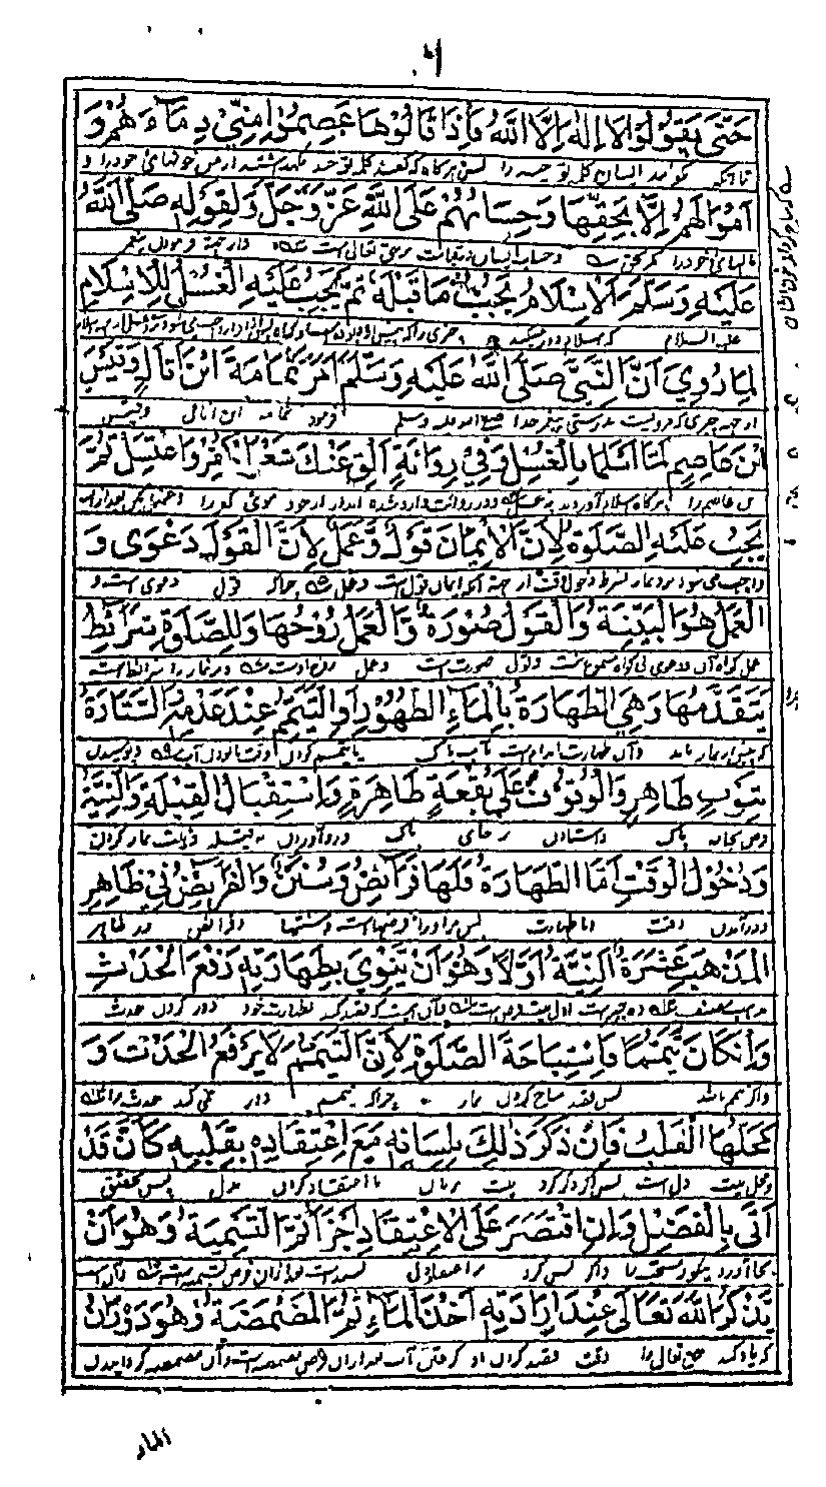 ٦
حَتّٰى يَقُولُوا لَا اِلٰهَ اِلَّا اللّٰهُ فَاِذَا قَالُوْهَا عَصِمُوْا مِنِّيْ دِمَآءَ هُمْ وَ
تا آنکه گویند ایشان کلمه توحید را پس هرگاه که گفتند کلمه توحید نگهداشتند از من خونهای خود را و
اَمْوَالَهُمْ اِلَّا بِحَقِّهَا وَحِسَابُهُمْ عَلَى اللّٰهِ عَزَّ وَجَلَّ وَلِقَوْلِهٖ صَلَّى اللّٰهُ
مالهای خود را مگر بحق و حساب ایشان بر حق تعالی است و از جهة فرمودن پیغمبر
عَلَيْهِ وَسَلَّمَ اَلْاِسْلَامُ يَجُبُّ مَا قَبْلَهٗ ثُمَّ يَجِبُ عَلَيْهِ الْغُسْلُ لِلْاِسْلَامِ
علیه السلام که اسلام دور میکند
لِمَا رُوِيَ اَنَّ النَّبِيَّ صَلَّى اللّٰهُ عَلَيْهِ وَسَلَّمَ اَمَرَ ثُمَامَةَ ابْنَ اَثَالٍ وَقَيْسَ
از جهة چیزی که مرویست بدرستی پیغمبر خدا صلی الله علیه وسلم فرمود ثمامه ابن اثال و قیس
ابْنَ عَاصِمٍ لَمَّا اَسْلَمَا بِالْغُسْلِ وَفِيْ رِوَايَةٍ اَلْقِ عَنْكَ شَعْرَ الْكُفْرِ وَاغْتَسِلْ ثُمَّ
بن عاصم را هرگاه اسلام آوردند به غسل و در روایت وارد شده انداز از خود موی کفر را
يَجِبُ عَلَيْهِ الصَّلٰوةُ لِاَنَّ الْاِيْمَانَ قَوْلٌ وَّعَمَلٌ لِاَنَّ الْقَوْلَ دَعْوٰى وَ
واجب می شود برو نماز بشرط دخول وقت از جهة آنکه ایمان قول است و عمل چراکه قول دعوی است و
الْعَمَلُ هُوَ الْبَيِّنَةُ وَالْقَوْلُ صُوْرَةٌ وَّالْعَمَلُ رُوْحُهَا وَلِلصَّلٰوةِ شَرَائِطُ
عمل گواه آن و دعوی بی گواه مسموع نیست و قول صورت است و عمل روح اوست و مر نماز را شرائط است
يَتَقَدَّمُهَا وَهِيَ الطَّهَارَةُ بِالْمَآءِ الطَّهُوْرِ اَوِ التَّيَمُّمُ عِنْدَ عَدَمِهٖ السَّتَارَةُ
که پیش از نماز باید و آن طهارت اندام است بآب پاک یا تیمم کردن وقت نابودن آب و پوشیدن
بِثَوْبٍ طَاهِرٍ وَالْوُقُوْفُ عَلٰى بُقْعَةٍ طَاهِرَةٍ وَاسْتِقْبَالُ الْقِبْلَةِ وَالنِّيَّةُ
پاک و استادن بر جای پاک و رو آوردن به قبله و نیت نماز کردن
وَدُخُوْلُ الْوَقْتِ اَمَّا الطَّهَارَةُ فَلَهَا فَرَائِضُ وَسُنَنٌ وَالْفَرَائِضُ فِيْ ظَاهِرِ
و در آمدن وقت اما طهارت پس مر او را فرضهاست و سنتها و فرائض در ظاهر
الْمَذْهَبِ عَشَرَةٌ اَلنِّيَّةُ اَوَّلًا وَهُوَ اَنْ يَّنْوِيَ بِطَهَارَتِهٖ رَفْعَ الْحَدَثِ
ده چیز است اول نیت فرض است و آن اینست که قصد کند بطهارت خود دور کردن حدث
وَاِنْ كَانَ تَيَمُّمًا فَاسْتِبَاحَةَ الصَّلٰوةِ لِاَنَّ التَّيَمُّمَ لَا يَرْفَعُ الْحَدَثَ وَ
و اگر تیمم باشد پس قصد مباح کردن نماز چراکه تیمم دور نمی کند حدث را
مَحَلُّهَا الْقَلْبُ فَاِنْ ذَكَرَ ذٰلِكَ بِلِسَانِهٖ مَعَ اعْتِقَادِهٖ بِقَلْبِهٖ كَانَ قَدْ
و محل نیت دل است پس اگر ذکر کرد نیت بزبان با اعتقاد کردن بدل پس بتحقیق
اَتٰى بِالْفَضْلِ وَاِنِ اقْتَصَرَ عَلَى الْاِعْتِقَادِ اَجْزَأَ ثُمَّ التَّسْمِيَةُ وَهُوَ اَنْ
بجا آورد و اگر بس کرد بر اعتقاد دل بسنده است بعد ازان فرض تسمیه است و آن است
يَّذْكُرَ اللّٰهَ تَعَالٰى عِنْدَ اِرَادَتِهٖ اَخْذَ الْمَآءِ ثُمَّ الْمَضْمَضَةُ وَهُوَ دَوْرَانُ
که یاد کند حق تعالی را وقت قصد کردن او گرفتن آب بعد ازان فرض مضمضه است و آن مضمضه گردانیدن
الماء